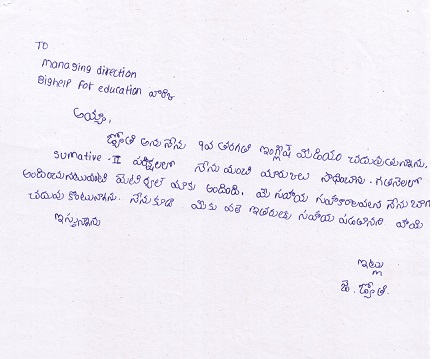 TO
Managing direction
Bighelp for education వారికి
అయ్యా,
జ్యోతి అను నేను 9వ తరగతి ఇంగ్లీషు మీడియం చదువుతున్నాను.
sumative - II పరీక్షలలో నేను మంచి మార్కులు సాధించాను. గతనెలలో
అందించినటువంటి మెటీరియల్ మాకు అందింది. మీ సహాయ సహకారాలవలన నేను బాగా
చదువు కొంటున్నాను. నేను కూడా మీకు వలె ఇతరులకు సహాయ పడతానని హామి
ఇస్తున్నాను
ఇట్లు
జె. జ్యోతి.